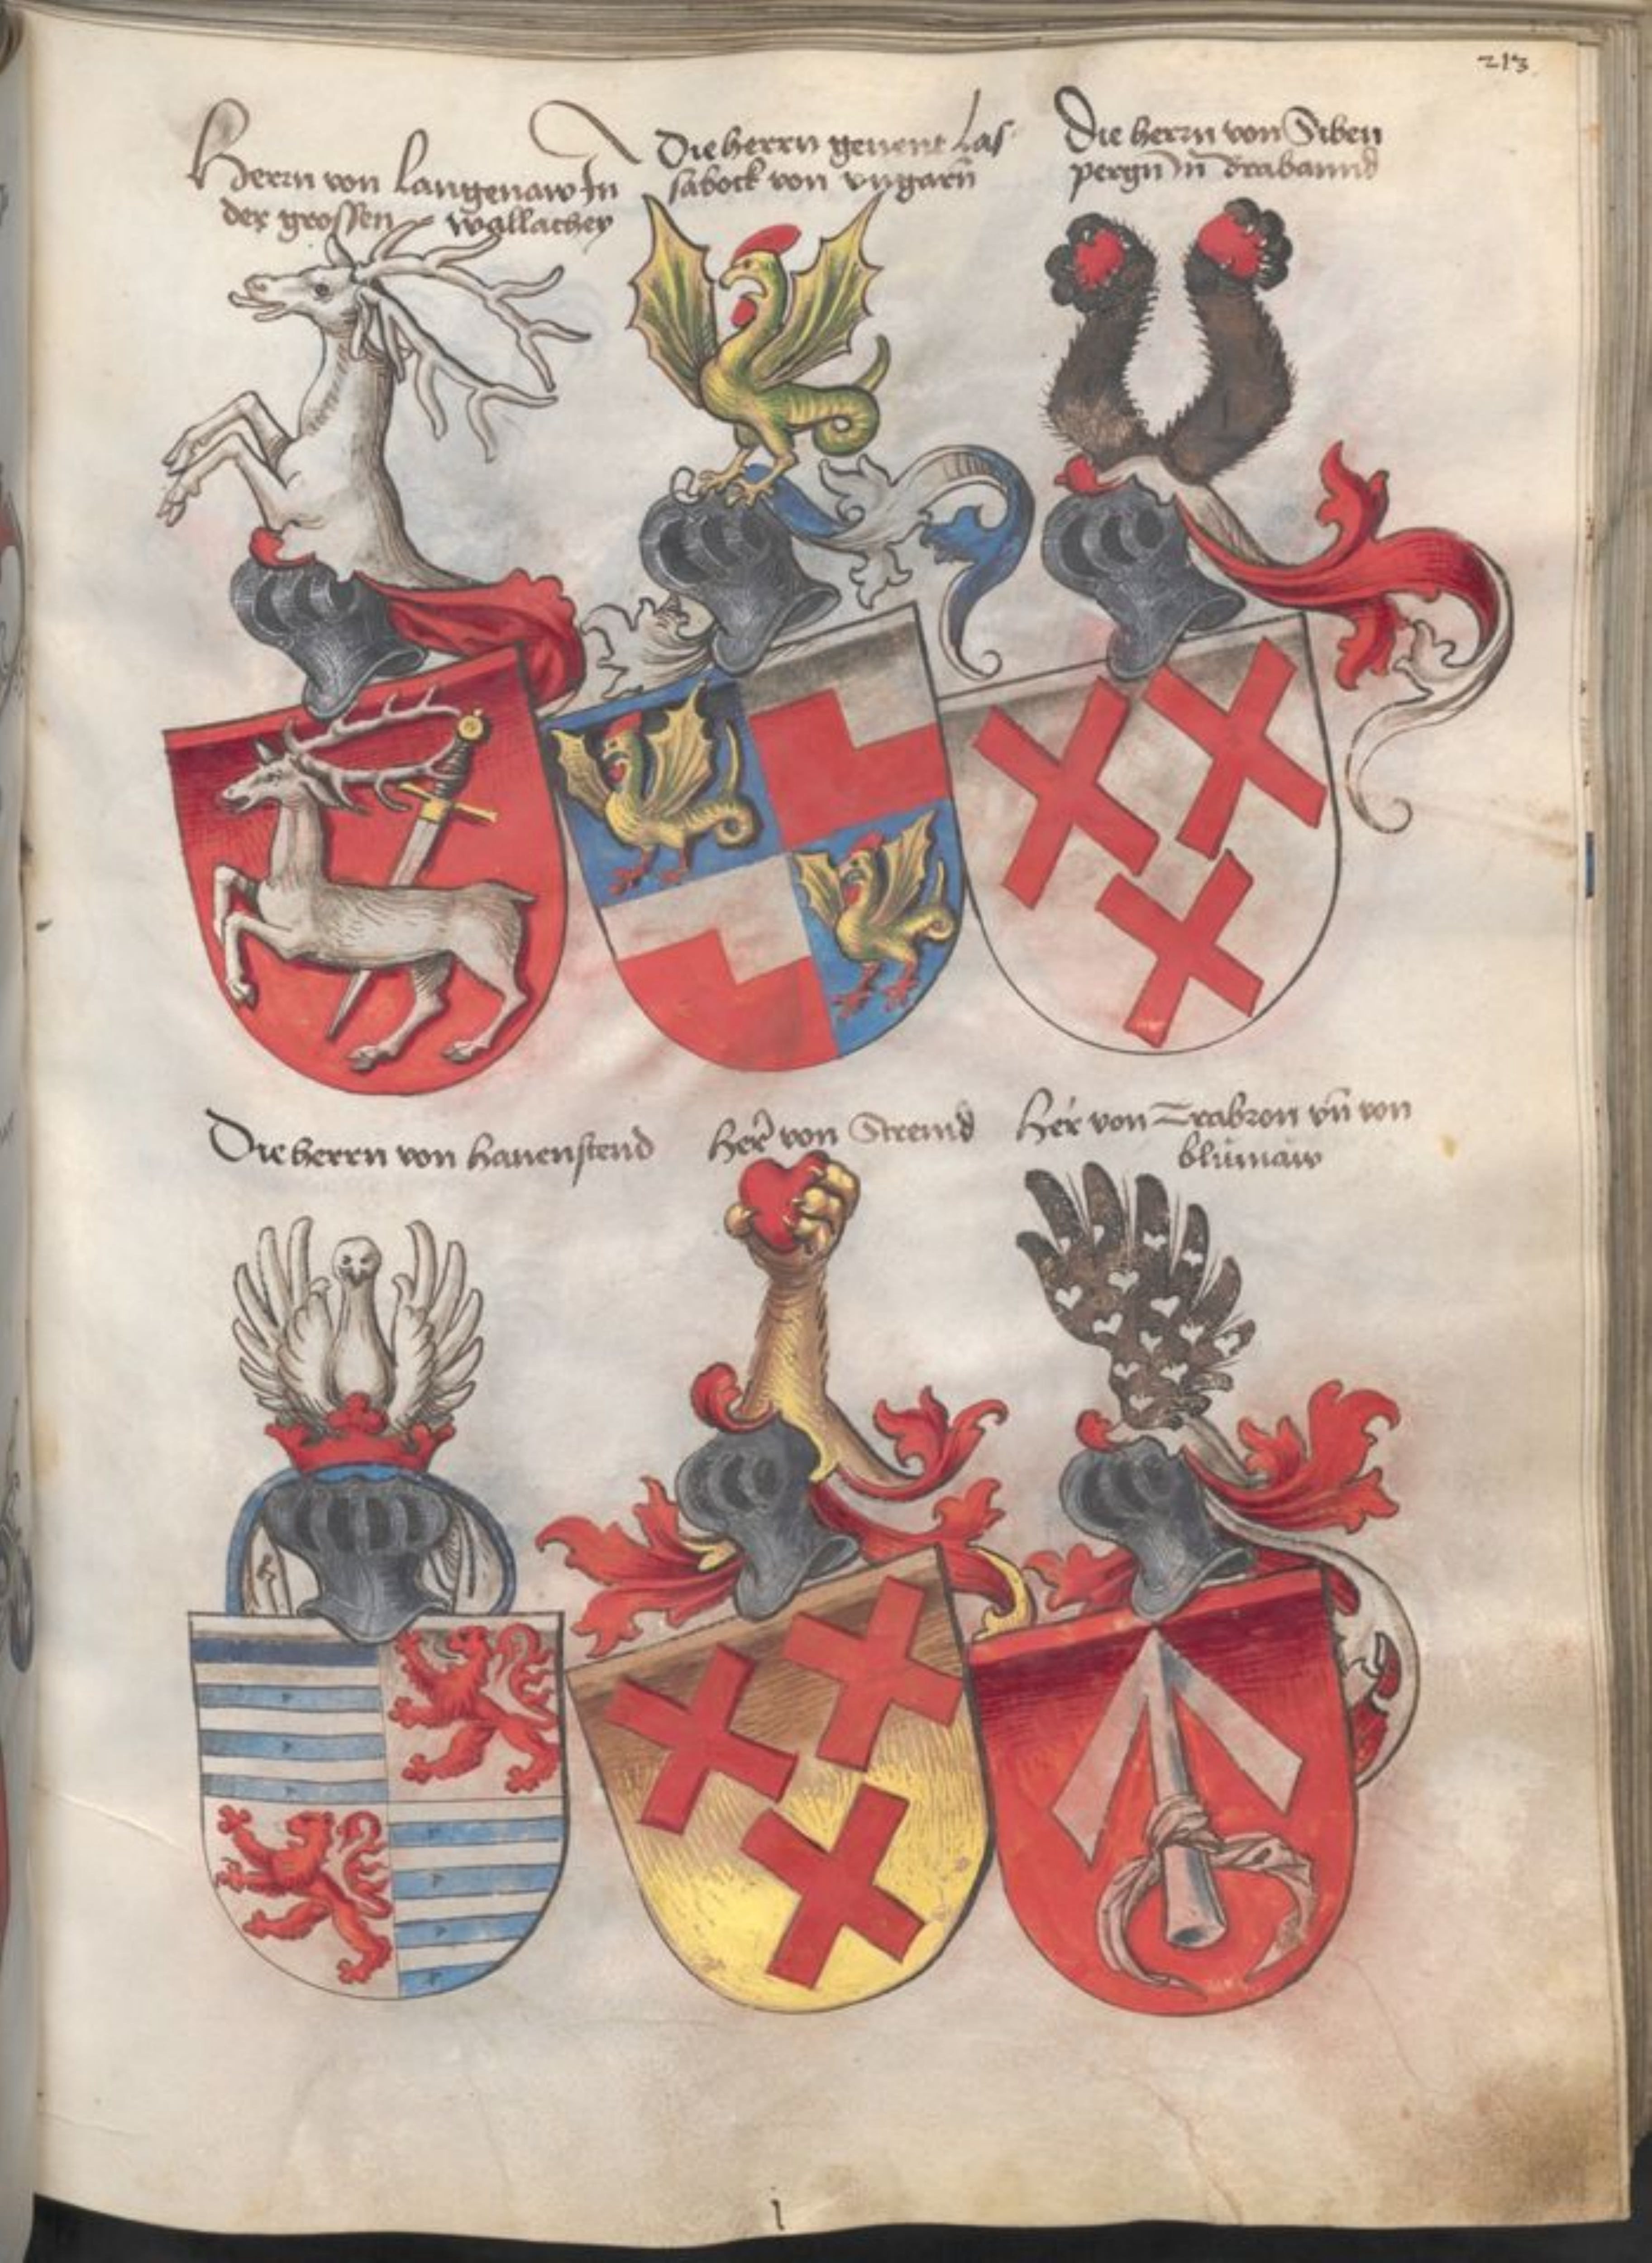 213
Herrn von Langenaw In
der grossen wallachey
Die herrn genent Las
sabock von vngarn̄
Die herrn von Siben
pergn̄ in̄ Brabannd
Die herrn von hauenstend
Her̄ von Stremd
Her̄ von Trabron vn̄ von
blumaw
1